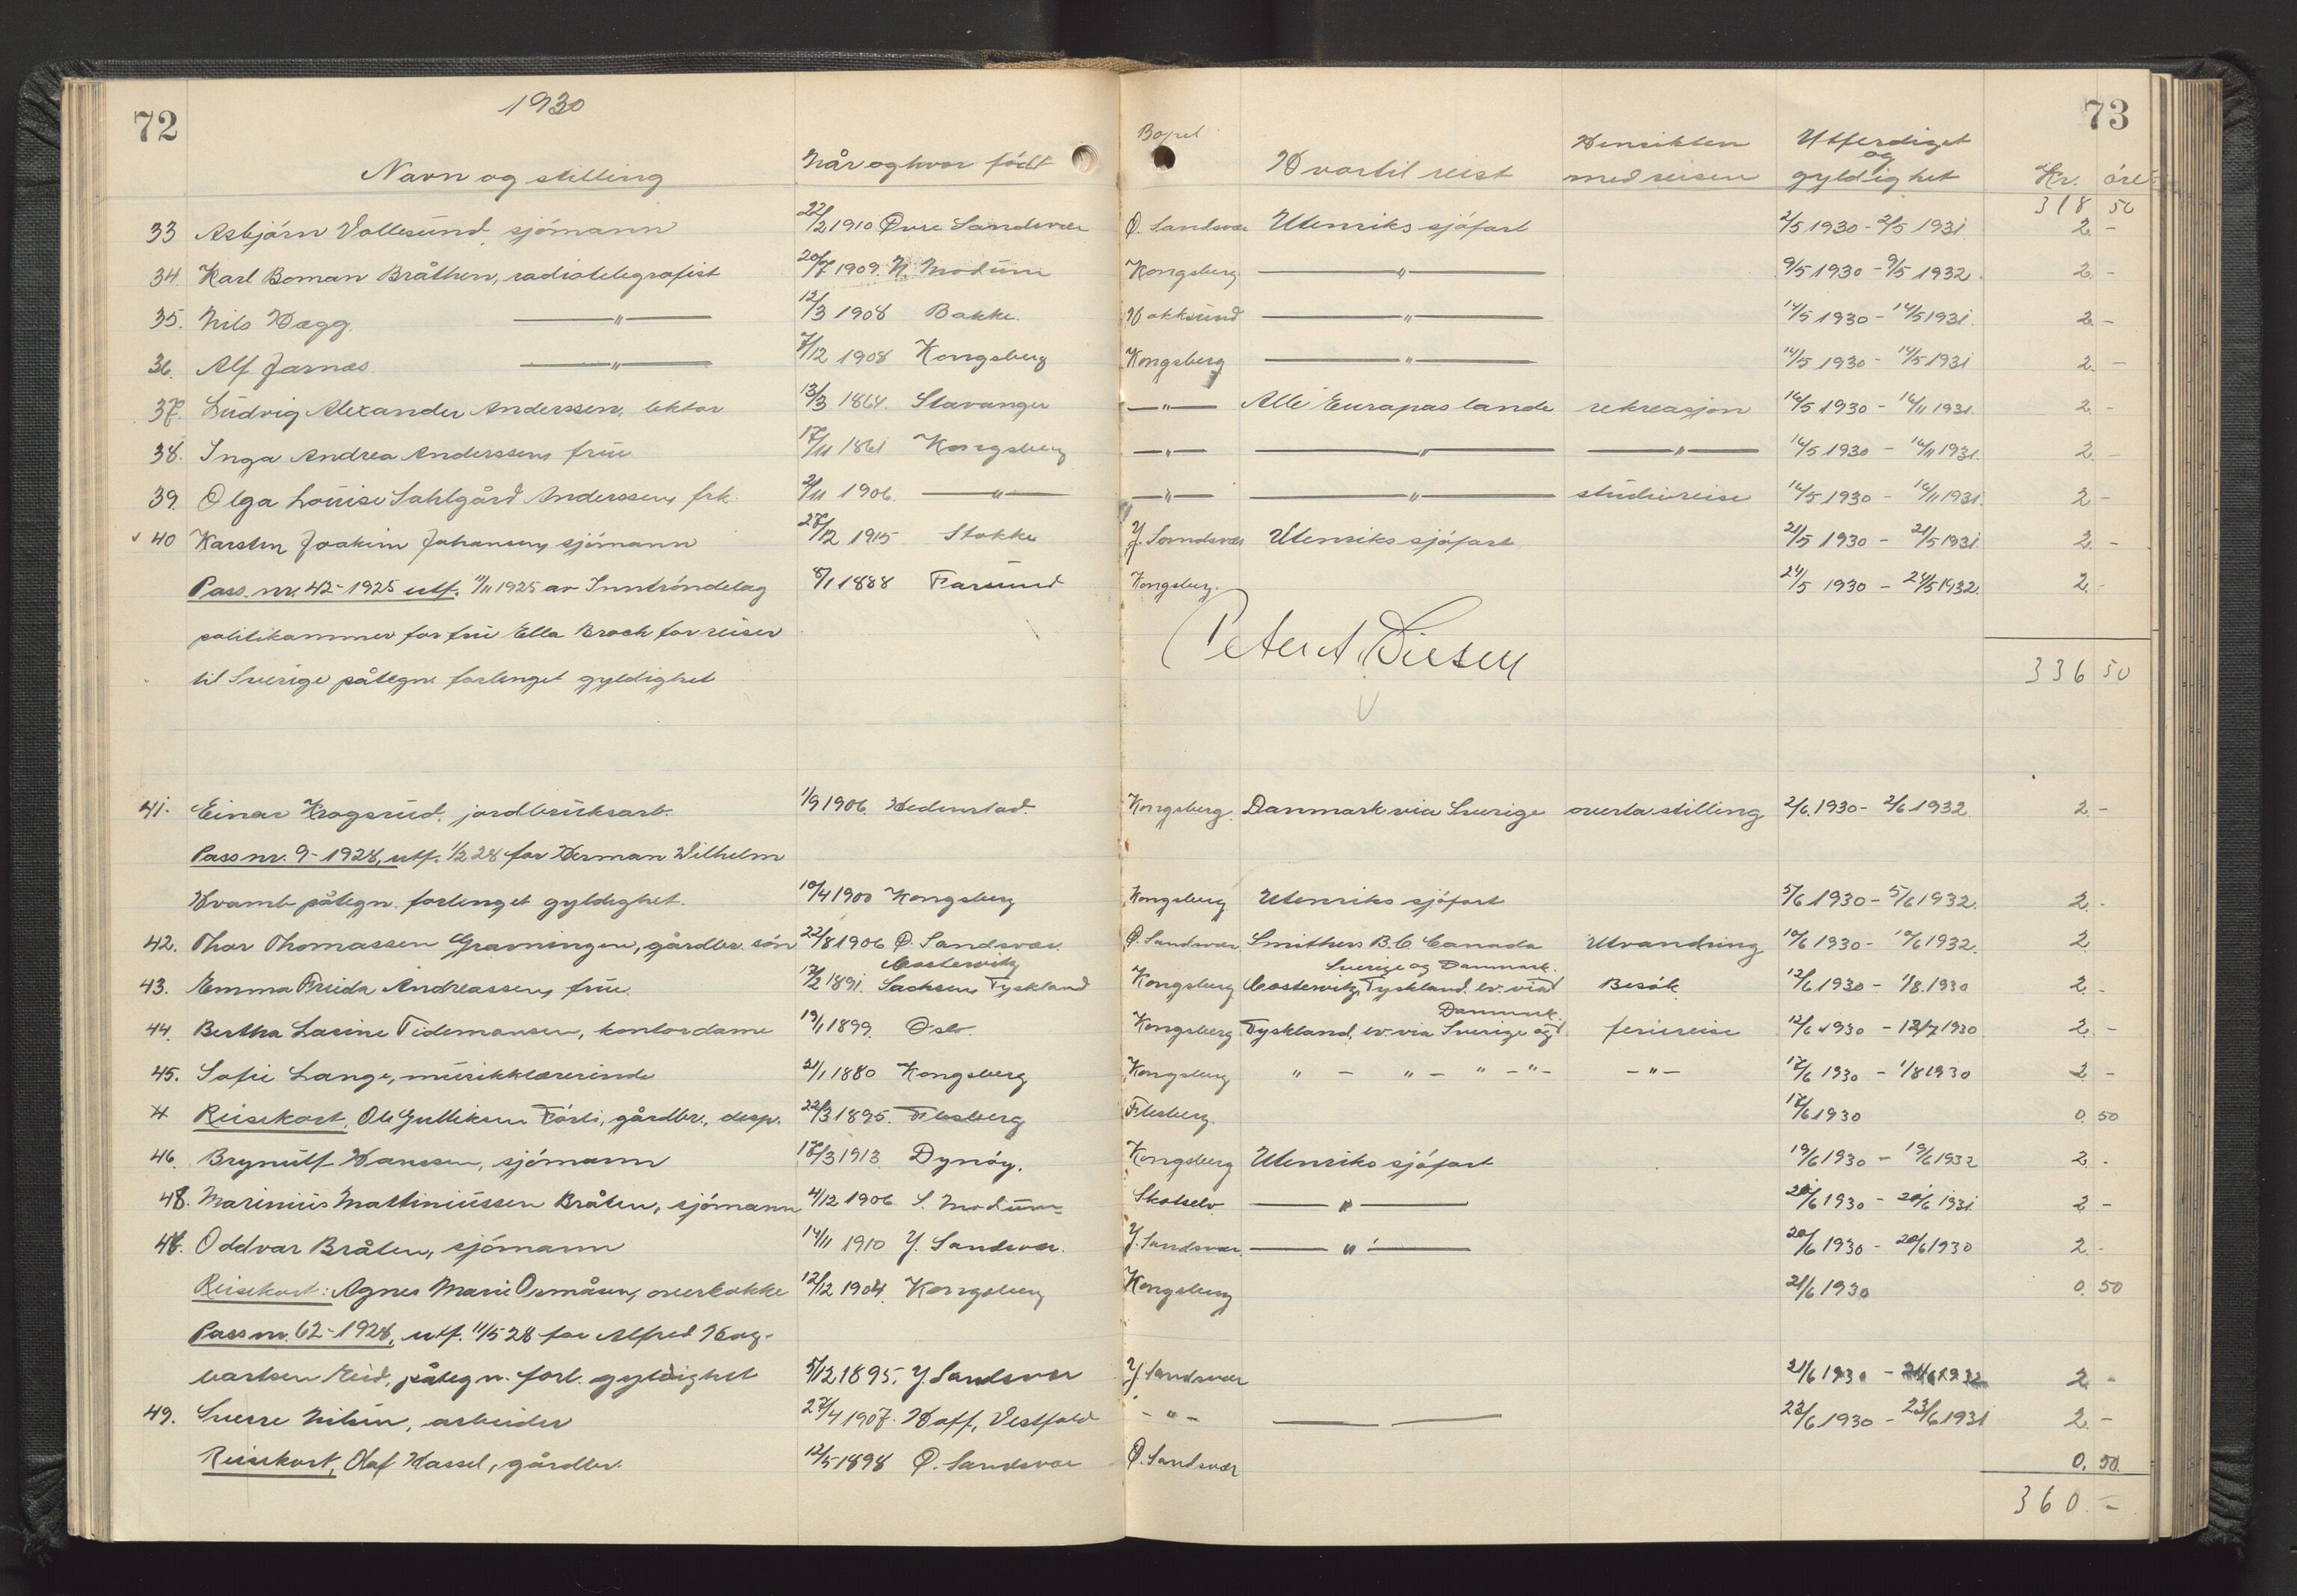 72 1930 73
Navn og stilling Når og hvor födt Bopel Hvortil reist Hensikten med reisen Utferdiget og gyldighet Kr. öre
318 50
33 Asbjörn Vollesund, sjömann 22/2 1910 Övre Sandsvær Ö. Sandsvær Utenriks sjöfart 2/5 1930 - 2/5 1931 2 -
34 Karl Boman Bråthen, radiotelegrafist 20/7 1909. N. Modum Kongsberg —"— 9/5 1930 - 9/5 1932. 2. -
35. Nils Hægg. —"— 12/3 1908 Bakke. Hokksund —"— 14/5 1930 - 14/5 1931. 2 -
36. Alf Jarnæs —"— 7/12 1908 Kongsberg Kongsberg —"— 14/5 1930 - 14/5 1931 2. -
37. Ludvig Alexander Anderssen, lektor 13/3 1864. Stavanger —"— Alle Europas lande rekreasjon 16/5 1930 - 16/11 1931. 2. -
38. Inga Andrea Anderssen, frue 17/11 1861 Kongsberg —"— —"— —"— 16/5 1930 - 16/11 1931. 2. -
39. Olga Louise Sahlgård Anderssen, frk. 2/11 1906. —"— —"— —"— studiereise 16/5 1930 - 16/11 1931. 2 -
40 Karsten Joakim Johansen, sjömann 27/12 1915 Stokke Y. Sandsvær Utenriks sjöfart 21/5 1930 - 21/5 1931. 2. -
Pass. nr. 42-1925 utf. 11/11 1925 av Inntröndelag 8/1 1888 Farsund Kongsberg. 24/5 1930 - 24/5 1932. 2. -
politikammer for frue Ella Broch for reiser
til Sverige påtegn. forlenget gyldighet 336 50
41. Einar Krogsrud, jordbruksarb. 1/9 1906. Hedenstad. Kongsberg. Danmark via Sverige overta stilling 2/6. 1930 - 2/6 1932 2 -
Pass nr. 9-1928, utf. 1/2 28 for Herman Wilhelm
Hvamb påtegn. forlenget gyldighet. 10/4 1900 Kongsberg Kongsberg Utenriks sjöfart 5/6 1930 - 5/6 1932. 2. -
42. Thor Thomassen Gravningen, gårdbr. sön 22/8 1906 Ö. Sandsvær. Ö. Sandsvær Smithers B.C. Canada Utvandring 10/6 1930 - 10/6 1932. 2
Costewitz Sverige og Danmark.
43. Emma Frieda Andreassen, frue. 17/2 1891. Sachsen Tyskland Kongsberg Costewitz, Tyskland. ev. via Besök. 12/6 1930 - 1/8. 1930 2. -
Danmark.
44. Bertha Lasine Tidemansen, kontordame 19/1 1899. Oslo. Kongsberg Tyskland, ev. via Sverige og feriereise 12/6 1930 - 12/7 1930 2. -
45. Sofie Lange, musikklærerinde 21/1 1880 Kongsberg Kongsberg " - " - " - " - - " - 17/6 1930 - 1/8 1930 2 -
Reisekort, Ole Gulliksen Förli, gårdbr., desp. 22/3 1895. Flesberg Flesberg. 17/6 1930 0. 50
46. Brynulf Hanssen, sjömann 18/3 1913. Dynöy. Kongsberg Utenriks sjöfart 19/6 1930 - 19/6 1932 2. -
48. Marinius Mattiniussen Bråten, sjömann 4/12 1906 S. Modum Skotselv. —"— 20/6 1930 - 20/6 1931. 2 -
47. Oddvar Bråten, sjömann 14/11 1910 Y. Sandsvær. Y. Sandsvær. —"— 20/6 1930 - 20/6 1930 2. -
Reisekort: Agnes Marie Ormåsen, overkokke 12/12 1904. Kongsberg Kongsberg 21/6 1930 0. 50
Pass nr. 62-1928, utf. 11/5 28 for Alfred Hag-
bartsen Eid, påtegn. forl. gyldighet 5/12 1895. Y. Sandsvær Y. Sandsvær 21/6 1930 - 21/6 1932 2 -
49. Sverre Nilsen, arbeider 27/4 1907. Hoff, Vestfold - " - — — 23/6 1930 - 23/6 1931 2. -
Reisekort, Olaf Hassel, gårdbr. 12/5 1898 Ö. Sandsvær Ö. Sandsvær 0. 50.
360. -